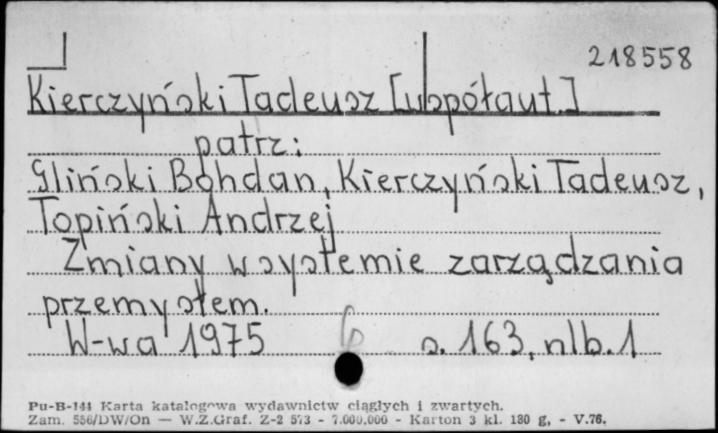 218558
Kierczyński Tadeusz [współaut.]
patrz:
Gliński Bohdan, Kierczyński Tadeusz,
Topiński Andrzej
Zmiany w systemie zarządzania
przemysłem.
W-wa 1975 s. 163, nlb. 1
Pu-B-144 Karta katalogowa wydawnictw ciągłych i zwartych.
Zam. 556/DW/On — W.Z.Graf. Z-2 573 - 7.000.000 - Karton 3 kl. 180 g, - V.76.